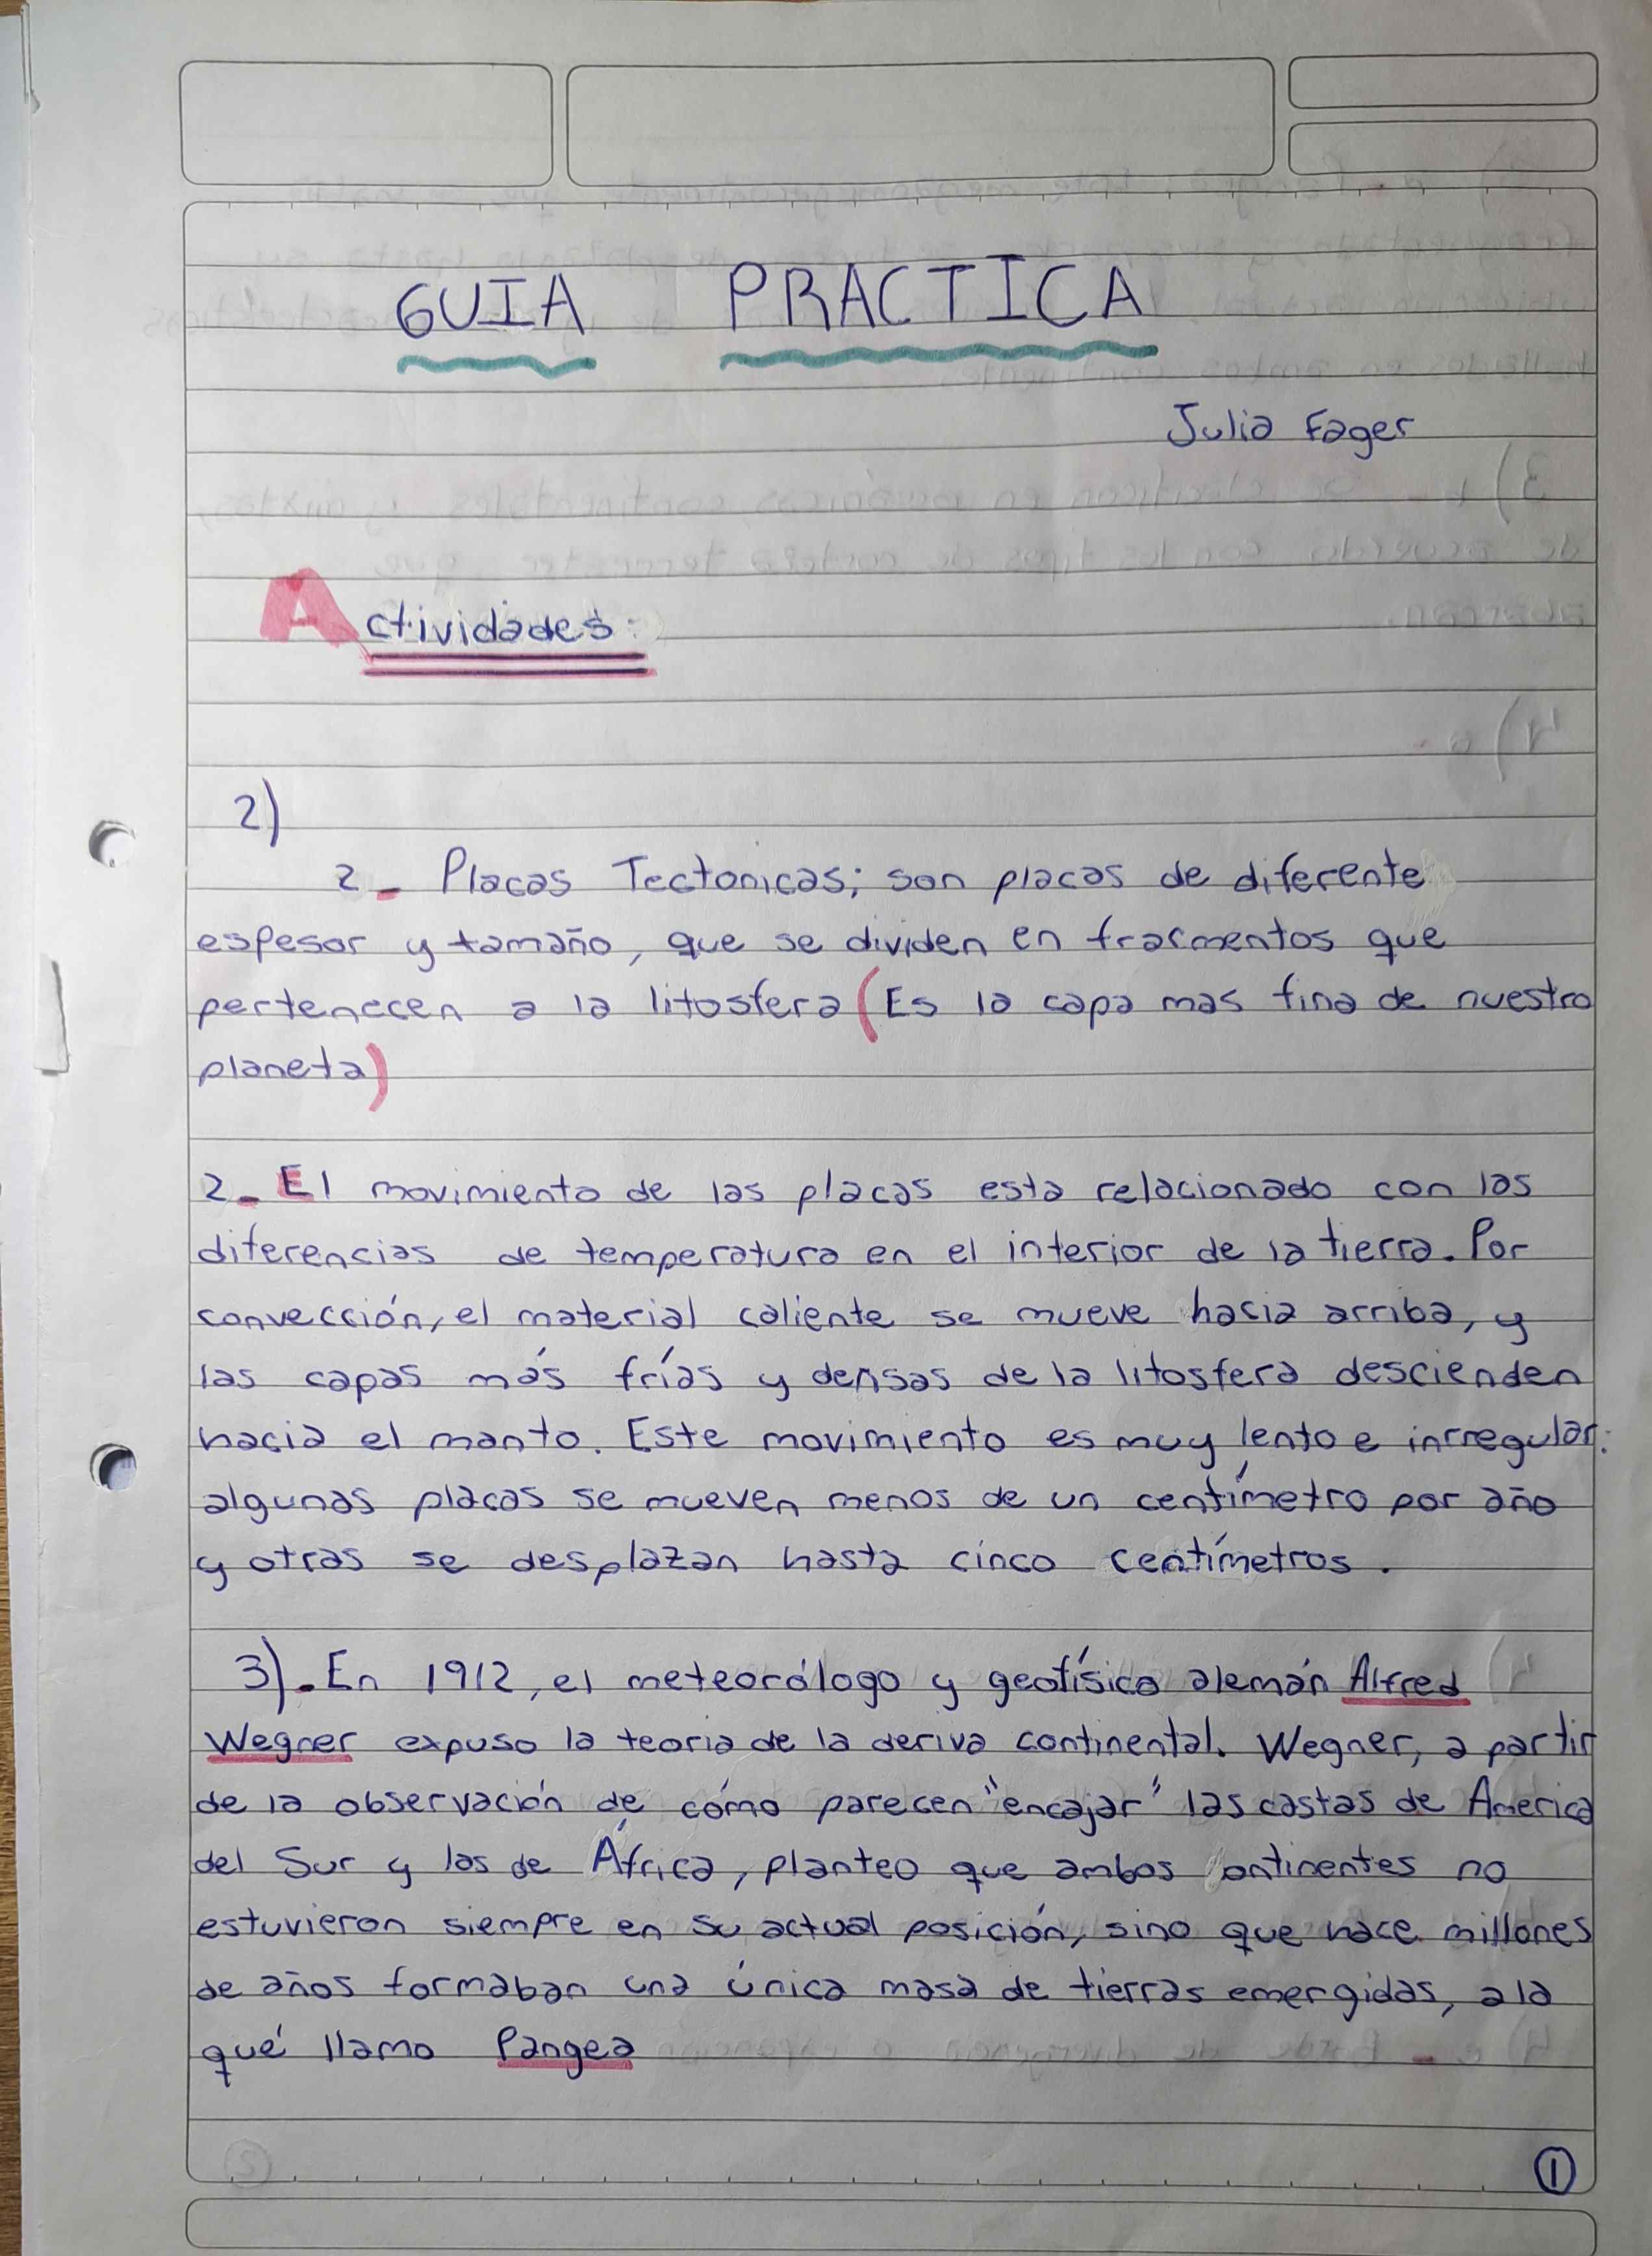 GUIA PRACTICA
Julia Fager
Actividades:
2)
2- Placas Tectonicas; son placas de diferente
espesor y tamaño, que se dividen en fracmentos que
pertenecen a la litosfera (Es la capa mas fina de nuestro
planeta)
2- El movimiento de las placas esta relacionado con las
diferencias de temperatura en el interior de la tierra. Por
convección, el material caliente se mueve hacia arriba, y
las capas más frías y densas de la litosfera descienden
hacia el manto. Este movimiento es muy lento e irregular:
algunas placas se mueven menos de un centímetro por año
y otras se desplazan hasta cinco centímetros.
3)- En 1912, el meteorólogo y geofísico alemán Alfred
Wegner expuso la teoria de la deriva continental. Wegner, a partir
de la observación de cómo parecen "encajar" las costas de America
del Sur y las de África, planteo que ambos ontinentes no
estuvieron siempre en su actual posición, sino que hace millones
de años formaban una única masa de tierras emergidas, a la
qué llamo Pangea
1